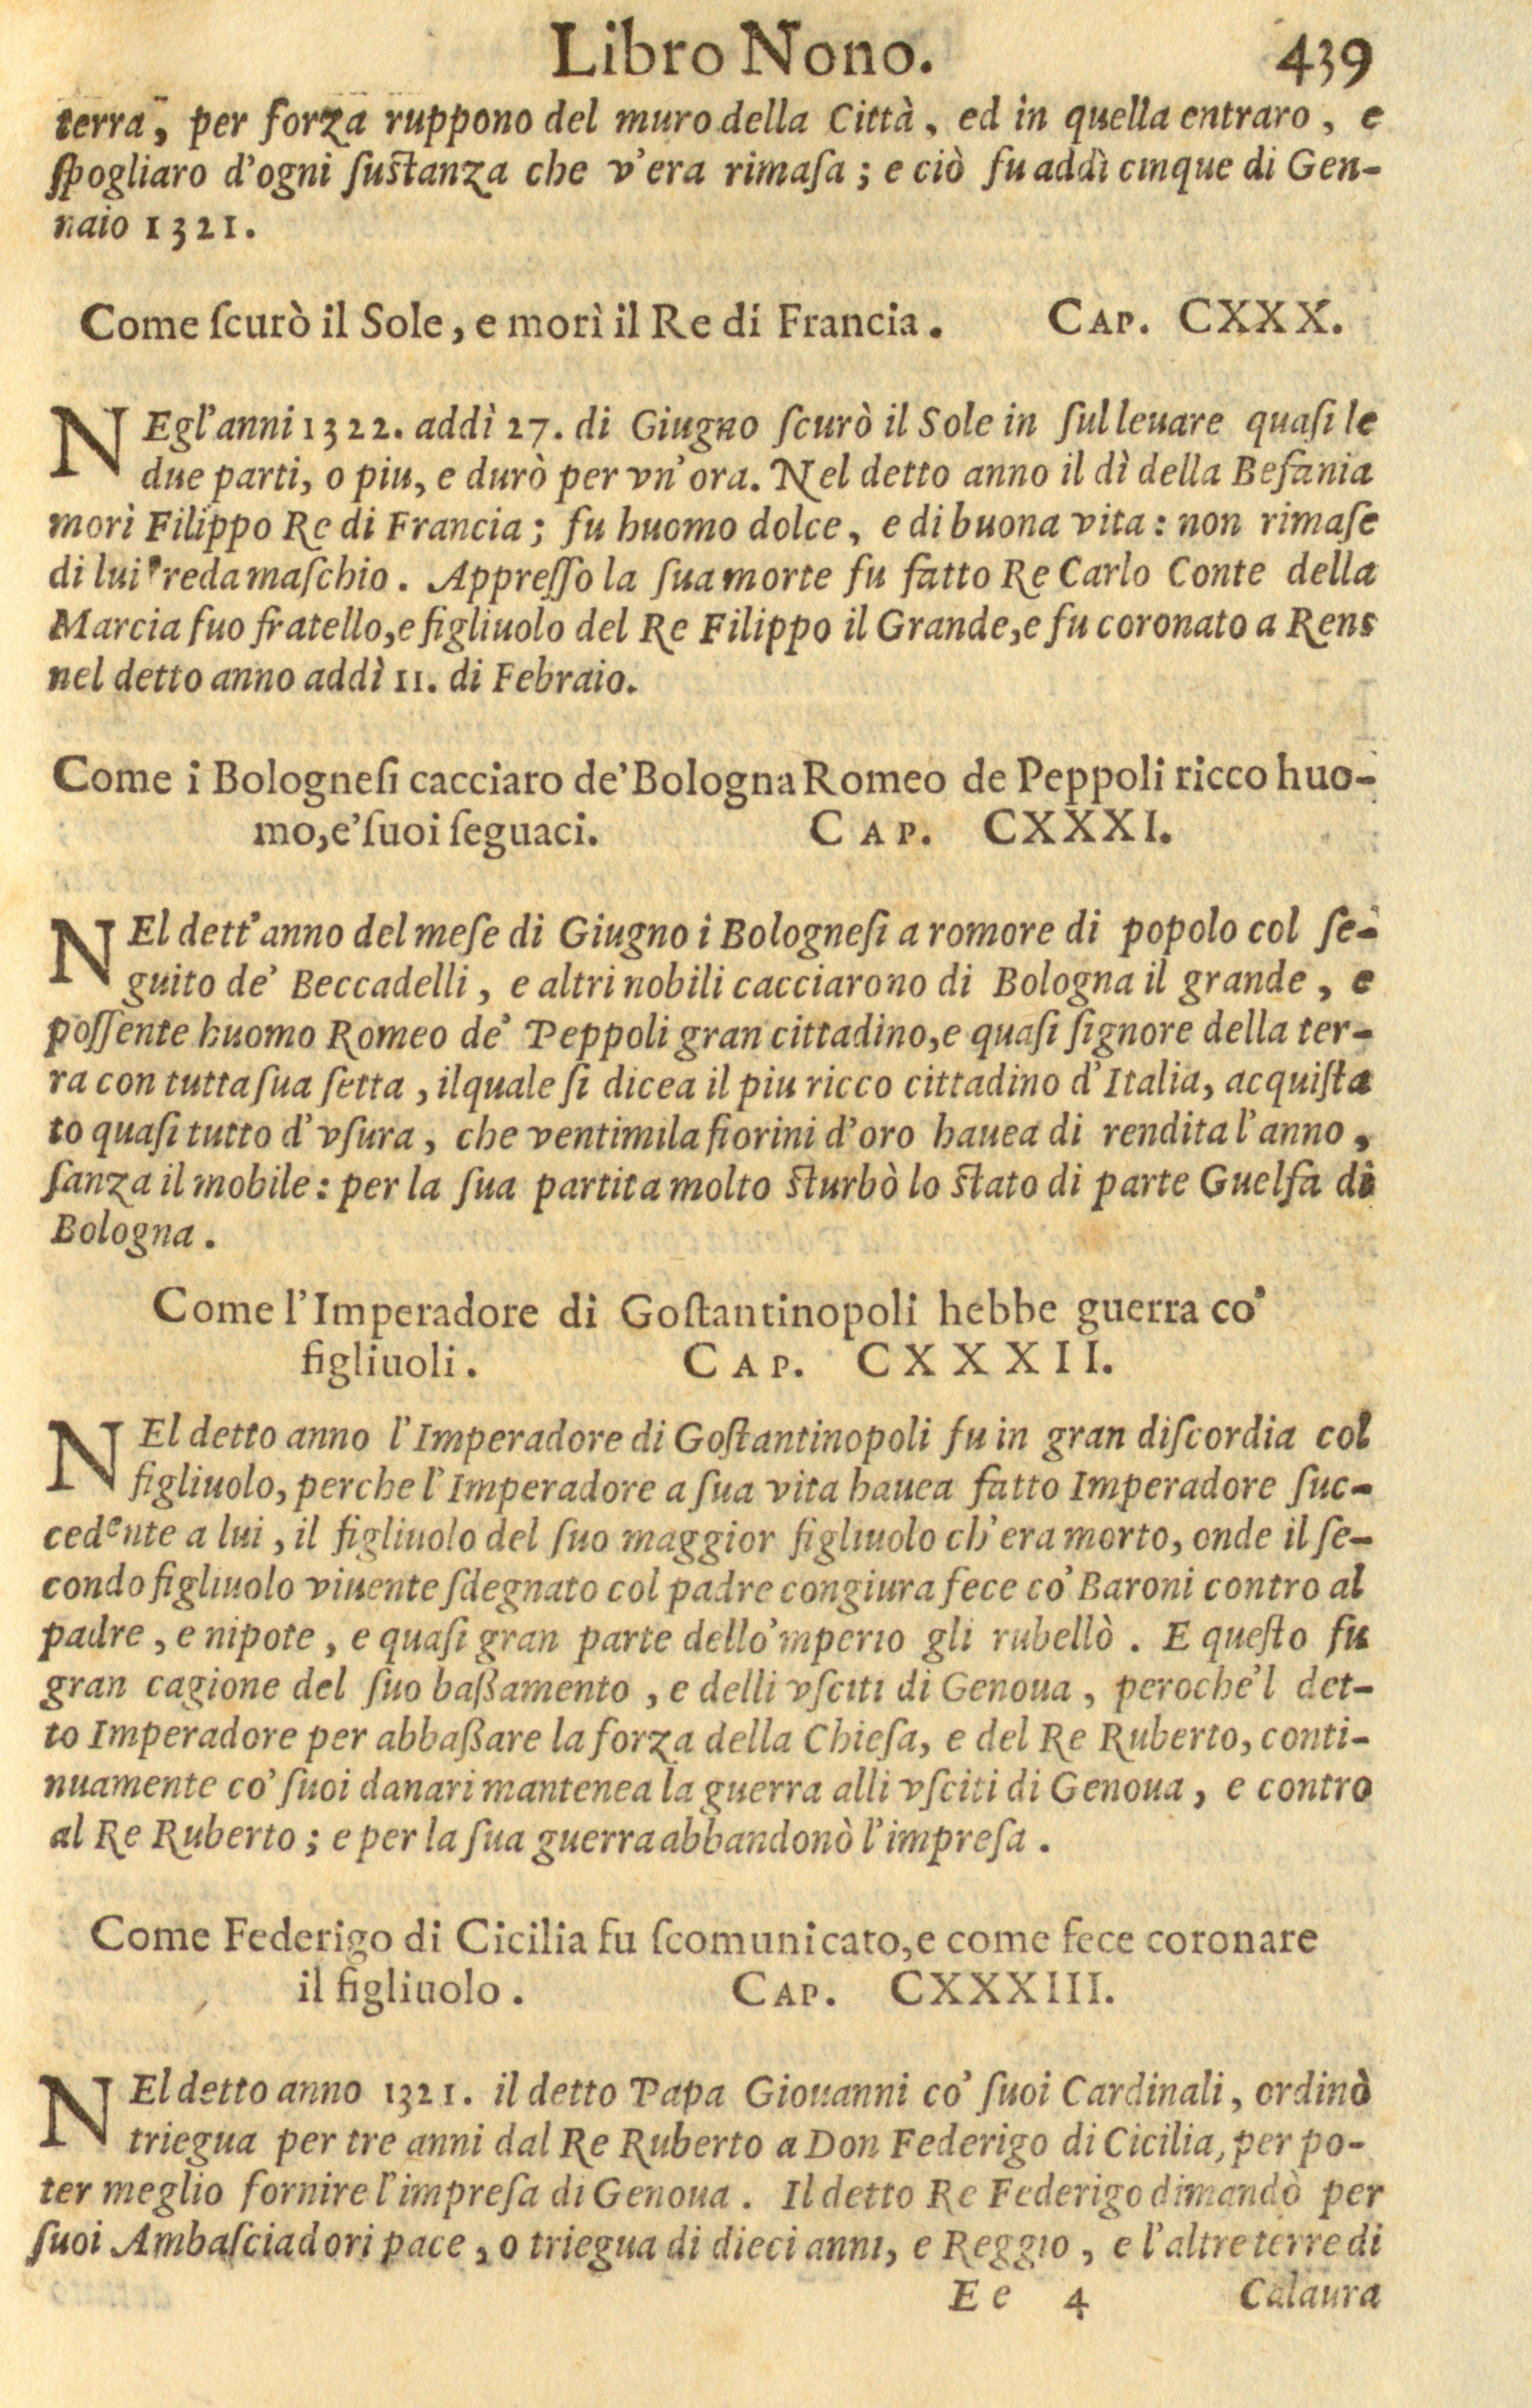 Libro Nono. 439
terra, per forza ruppono del muro della Città, ed in quella entraro, e
ſpogliaro d'ogni ſuſtanza che v'era rimaſa; e ciò fu addì cinque di Gen-
naio 1321.
Come ſcurò il Sole, e morì il Re di Francia. CAP. CXXX.
NEgl'anni 1322. addì 27. di Giugno ſcurò il Sole in ſul leuare quaſi le
due parti, o piu, e durò per vn'ora. Nel detto anno il dì della Befania
morì Filippo Re di Francia; fu huomo dolce, e di buona vita: non rimaſe
di lui 'reda maſchio. Appreſſo la ſua morte fu fatto Re Carlo Conte della
Marcia ſuo fratello, e figliuolo del Re Filippo il Grande, e fu coronato a Rens
nel detto anno addì 11. di Febraio.
Come i Bologneſi cacciaro de' Bologna Romeo de Peppoli ricco huo-
mo, e' ſuoi ſeguaci. CAP. CXXXI.
NEl dett'anno del meſe di Giugno i Bologneſi a romore di popolo col ſe-
guito de' Beccadelli, e altri nobili cacciarono di Bologna il grande, e
poſſente huomo Romeo de' Peppoli gran cittadino, e quaſi ſignore della ter-
ra con tutta ſua ſetta, ilquale ſi dicea il piu ricco cittadino d'Italia, acquiſta
to quaſi tutto d'vſura, che ventimila fiorini d'oro hauea di rendita l'anno,
ſanza il mobile: per la ſua partita molto ſturbò lo ſtato di parte Guelfa di
Bologna.
Come l'Imperadore di Goſtantinopoli hebbe guerra co'
figliuoli. CAP. CXXXII.
NEl detto anno l'Imperadore di Goſtantinopoli fu in gran diſcordia col
figliuolo, perche l'Imperadore a ſua vita hauea fatto Imperadore ſuc-
cedente a lui, il figliuolo del ſuo maggior figliuolo ch'era morto, onde il ſe-
condo figliuolo viuente ſdegnato col padre congiura fece co' Baroni contro al
padre, e nipote, e quaſi gran parte dello 'mperio gli rubellò. E queſto fu
gran cagione del ſuo baßamento, e delli vſciti di Genoua, peroche'l det-
to Imperadore per abbaßare la forza della Chieſa, e del Re Ruberto, conti-
nuamente co' ſuoi danari mantenea la guerra alli vſciti di Genoua, e contro
al Re Ruberto; e per la ſua guerra abbandonò l'impreſa.
Come Federigo di Cicilia fu ſcomunicato, e come fece coronare
il figliuolo. CAP. CXXXIII.
NEl detto anno 1321. il detto Papa Giouanni co' ſuoi Cardinali, ordinò
triegua per tre anni dal Re Ruberto a Don Federigo di Cicilia, per po-
ter meglio fornire l'impreſa di Genoua. Il detto Re Federigo dimandò per
ſuoi Ambaſciadori pace, o triegua di dieci anni, e Reggio, e l'altre terre di
Ee 4 Calaura